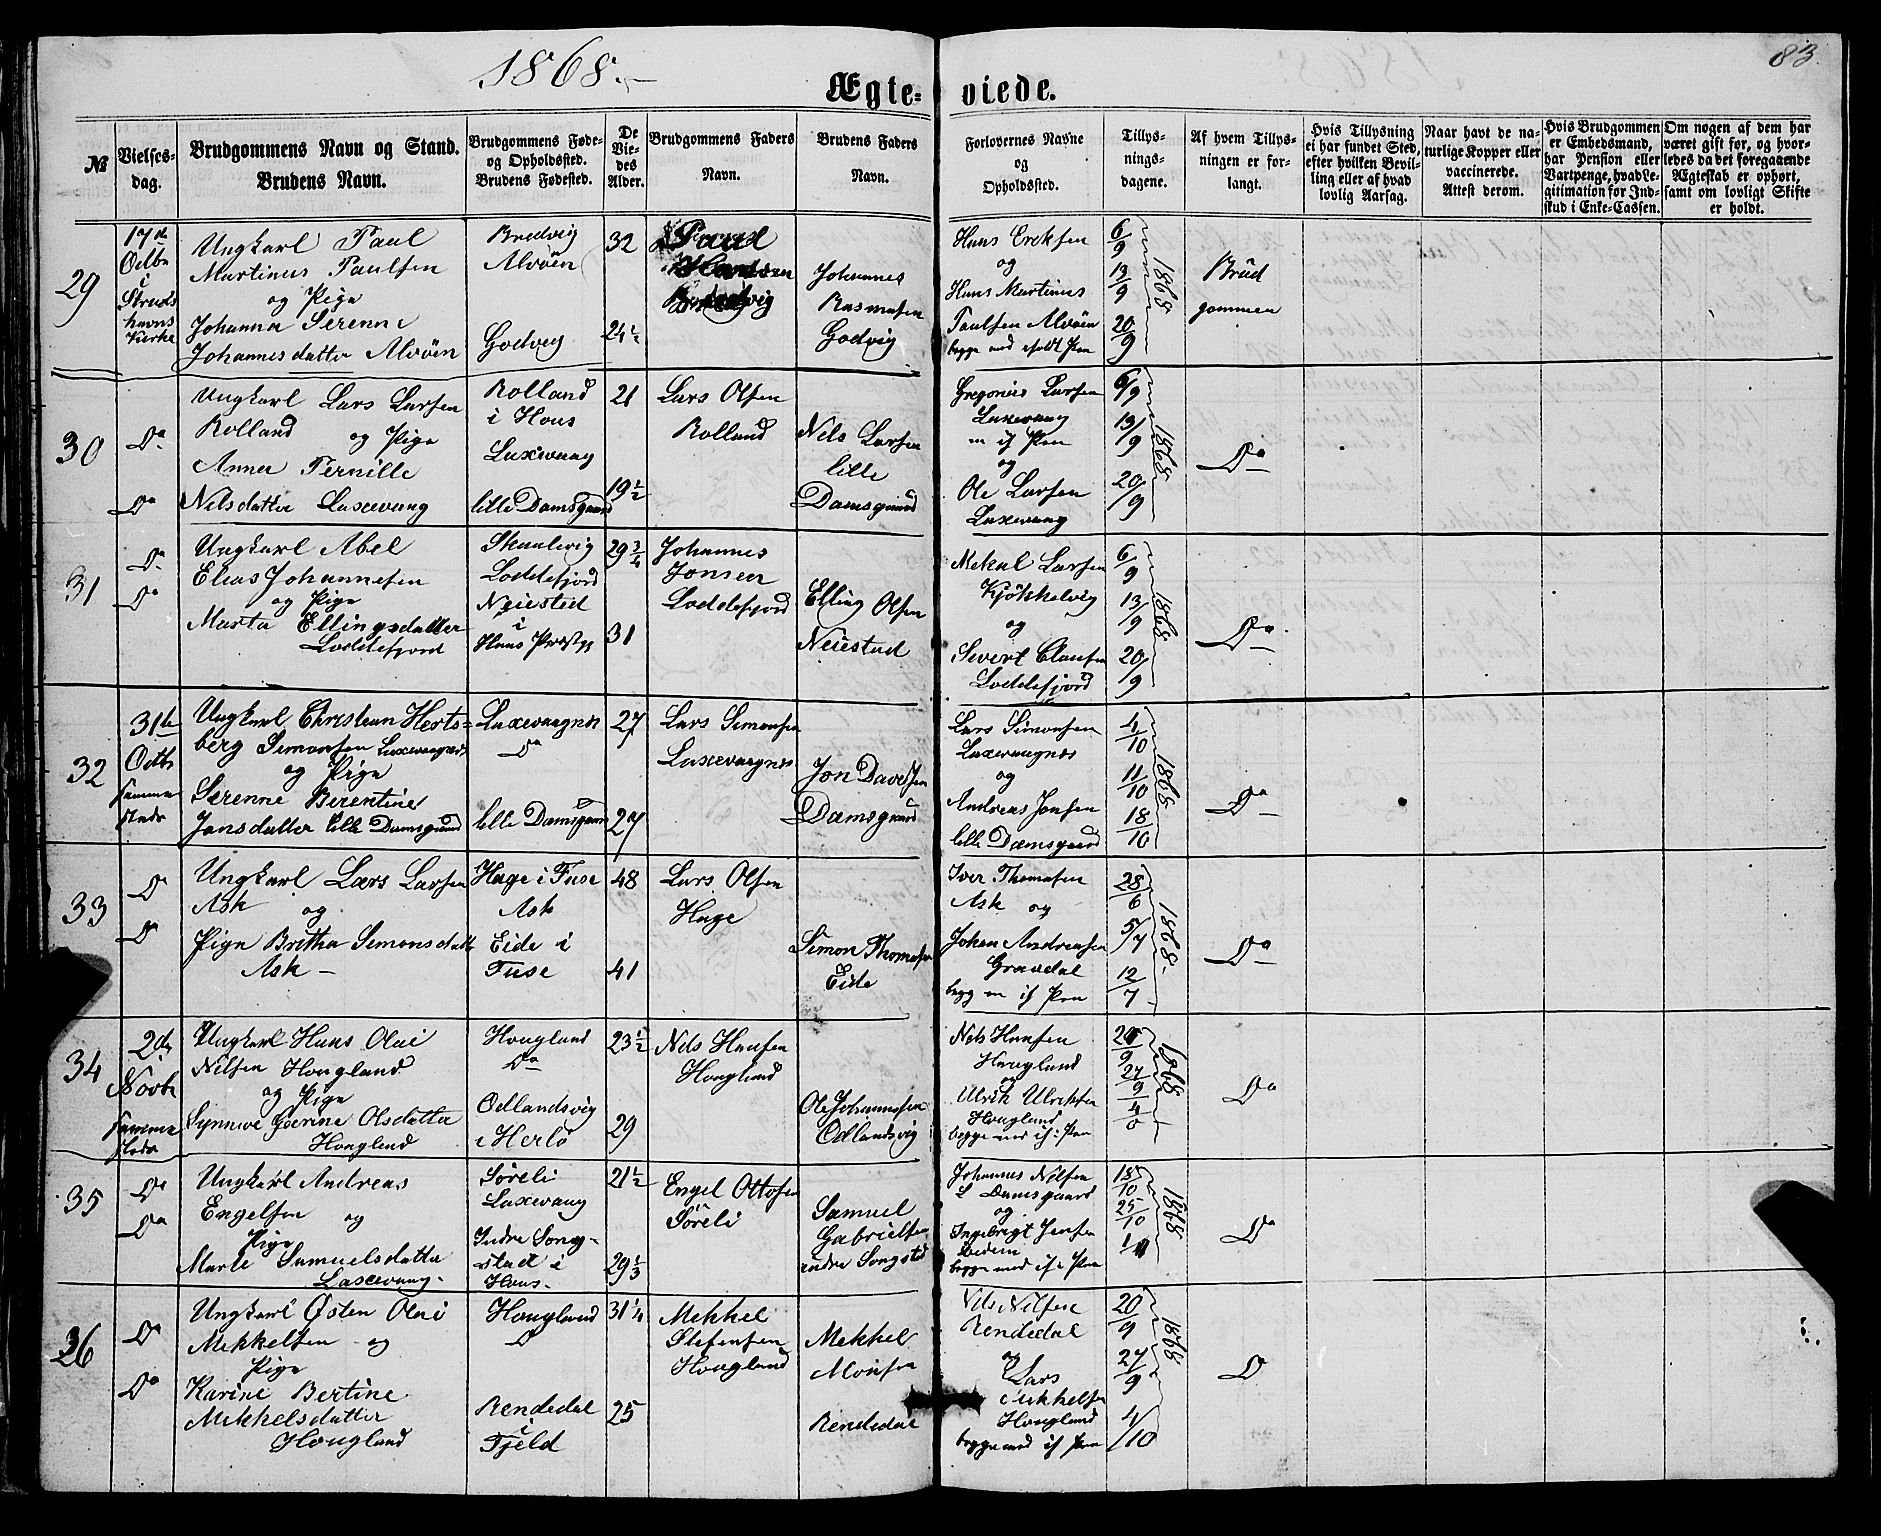 1868.
83.
Ægteviede.
№
Vielses-
dag.
Brudgommens Navn og Stand.
Brudens Navn.
Brudgommens Føde-
og Opholdssted.
Brudens Fødested.
De
Vie-
des
Alder.
Brudgommens Faders
Navn.
Brudens Faders
Navn.
Forlovernes Navne
og
Opholdssted.
Tillys-
nings-
dagene.
Af hvem Tillys-
ningen er for-
langt.
Hvis Tillysning
ei har fundet Sted,
efter hvilken Bevil-
ling eller af hvad
lovlig Aarsag.
Naar havt de na-
turlige Kopper eller
vaccinerede.
Attest derom.
Hvis Brudgommen
er Embedsmand,
har Pension eller
Vartpenge, hvad Le-
gitimation for Ind-
skud i Enke-Cassen.
Om nogen af dem har
været gift før, og hvor-
ledes da det foregaaende
Ægteskab er ophørt,
samt om lovligt Skifte
er holdt.
29
17de
Octbr
i
Strus
havns
Kierke
Ungkarl Paul
Martinus Paulsen
og Pige
Johanna Serenne
Johannesdatter Alvøen
Bredvig
Alvøen
Godvig
32
24½
Paul
Hansen
Bredvig
Johannes
Rasmusen
Godvig
Hans Ereksen
og
Hans Martinus
Paulsen Alvøen
6/9
13/9
20/9
1868
Brud
gommen
30
Do
Do
Ungkarl Lars Larsen
Rolland og Pige
Anna Pernille
Nilsdatter Laxevaag
Rolland
i Hous
Laxevaag
lille Damsgaard
21
19½
Lars Olsen
Rolland
Nils Larsen
lille
Damsgaard
Gregorius Larsen
Laxevaag
og
Ole Larsen
Laxevaag
6/9
13/9
20/9
1868
Do
31
Do
Do
Ungkarl Abel
Elias Johannesen
og Pige
Marta Ellingsdatter
Loddefjord
Skaalevig
Loddefjord
Neiestad
i
Haus Præstgj
29¾
31
Johannes
Jonsen
Loddefjord
Elling Olsen
Neiestad
Mekal Larsen
Kjøkkelvig
og
Sivert Clausen
Loddefjord
6/9
13/9
20/9
1868
Do
32
31te
Octbr
samme
steds
Ungkarl Christian Herts-
berg Simonsen Laxevaagnæs
og Pige
Serenne Berentine
Jonsdatter lille Damsgaard
Laxevaagnes
Do
lille Damsgaard
27
27
Lars Simonsen
Laxevaagnæs
Jon Davidsen
Damsgaard
Lars Simonsen
Laxevaagnæs
og
Andreas Jonsen
lille Damsgaard
4/10
11/10
18/10
1868
Do
33
Do
Do
Ungkarl Lars Larsen
Ask og
Pige Britha Simonsdatter
Ask
Hage i Fuse
Ask
Eide i
Fuse
48
41
Lars Olsen
Hage
Simon Thomasen
Eide
Iver Thomasen
Ask og
Johan Andreasen
Gravdal
28/6
5/7
12/7
1868
Do
34
2de
Novbr
samme
steds
Ungkarl Hans Olai
Nilsen Hougland
og Pige
Synneve Geerine Olsdatter
Hougland
Hougland
Do
Odlandsvig
i Herlø
23½
29
Nils Hansen
Hougland
Ole Johannesen
Odlandsvig
Nils Hansen
Hougland
og
Ulrik Ulriksen
Hougland
20/9
27/9
1868
Do
35
Do
Do
Ungkarl Andreas
Engelsen og
Pige
Marte Samuelsdatter
Laxevaag
Søreli
Laxevaag
Indre Song-
stad i
Haus
21½
29⅓
Engel Ottosen
Søreli
Samuel
Gabrielsen
indre Songstd
Johannes Nilsen
L Damsgaard
og
Ingebrigt Jensen
18/10
25/10
1/11
1868
Do
36
Do
Do
Ungkarl Østen Olai
Mekkelsen og
Pige
Karine Bertine
Mekkelsdatter
Hougland
Hougland
Do
Rendedal
i
Fjeld
31¼
25
Mekkel
Stefensen
Hougland
Mekkel
Monsen
Rendedal
Nils Nilsen
Rendedal
og
Lars
Mekkelsen
Hougland
20/9
27/9
4/10
1868
Do